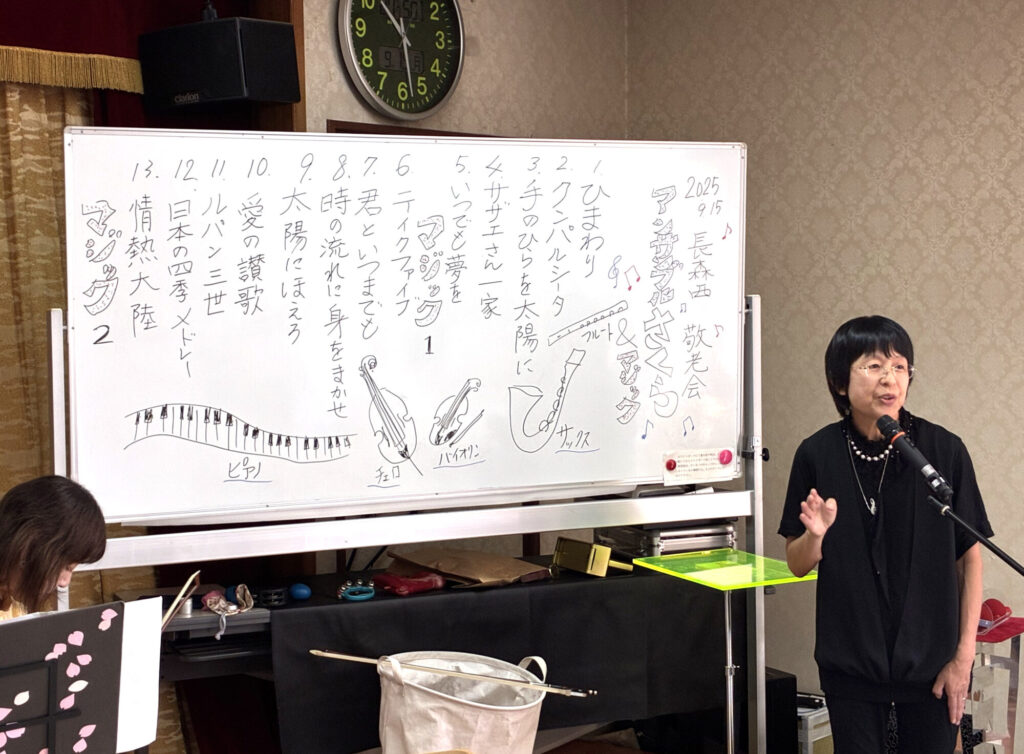 2025
9.15
長森西 敬老会
アンサンブルさくらう
&マジック
1. ひまわり
2. クンパルシータ
3. 手のひらを太陽に
4. サザエさん一家
5. いつでも夢を
マジック 1
6. テイクファイブ
7. 君といつまでも
8. 時の流れに身をまかせ
9. 太陽にほえろ
10. 愛の讃歌
11. ルパン三世
12. 日本の四季メドレー
13. 情熱大陸
マジック 2
フルート
サックス
バイオリン
チェロ
ピアノ
clarion
10
9
8
7
6
5
4
3
2